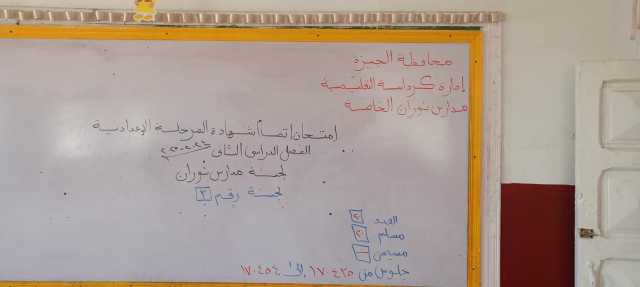 محافظة الجيزة
إدارة كرداسة التعليمية
مدارس نوران الخاصة
إمتحان اتمام شهادة المرحلة الإعدادية
الفصل الدراسى الثانى
لجنة مدارس نوران
لجنة رقم ٣
العدد ٢٠
مسلم ٢٠
مسيحى
جلوس من ١٧٠٤٣٥ إلى ١٧٠٤٥٤